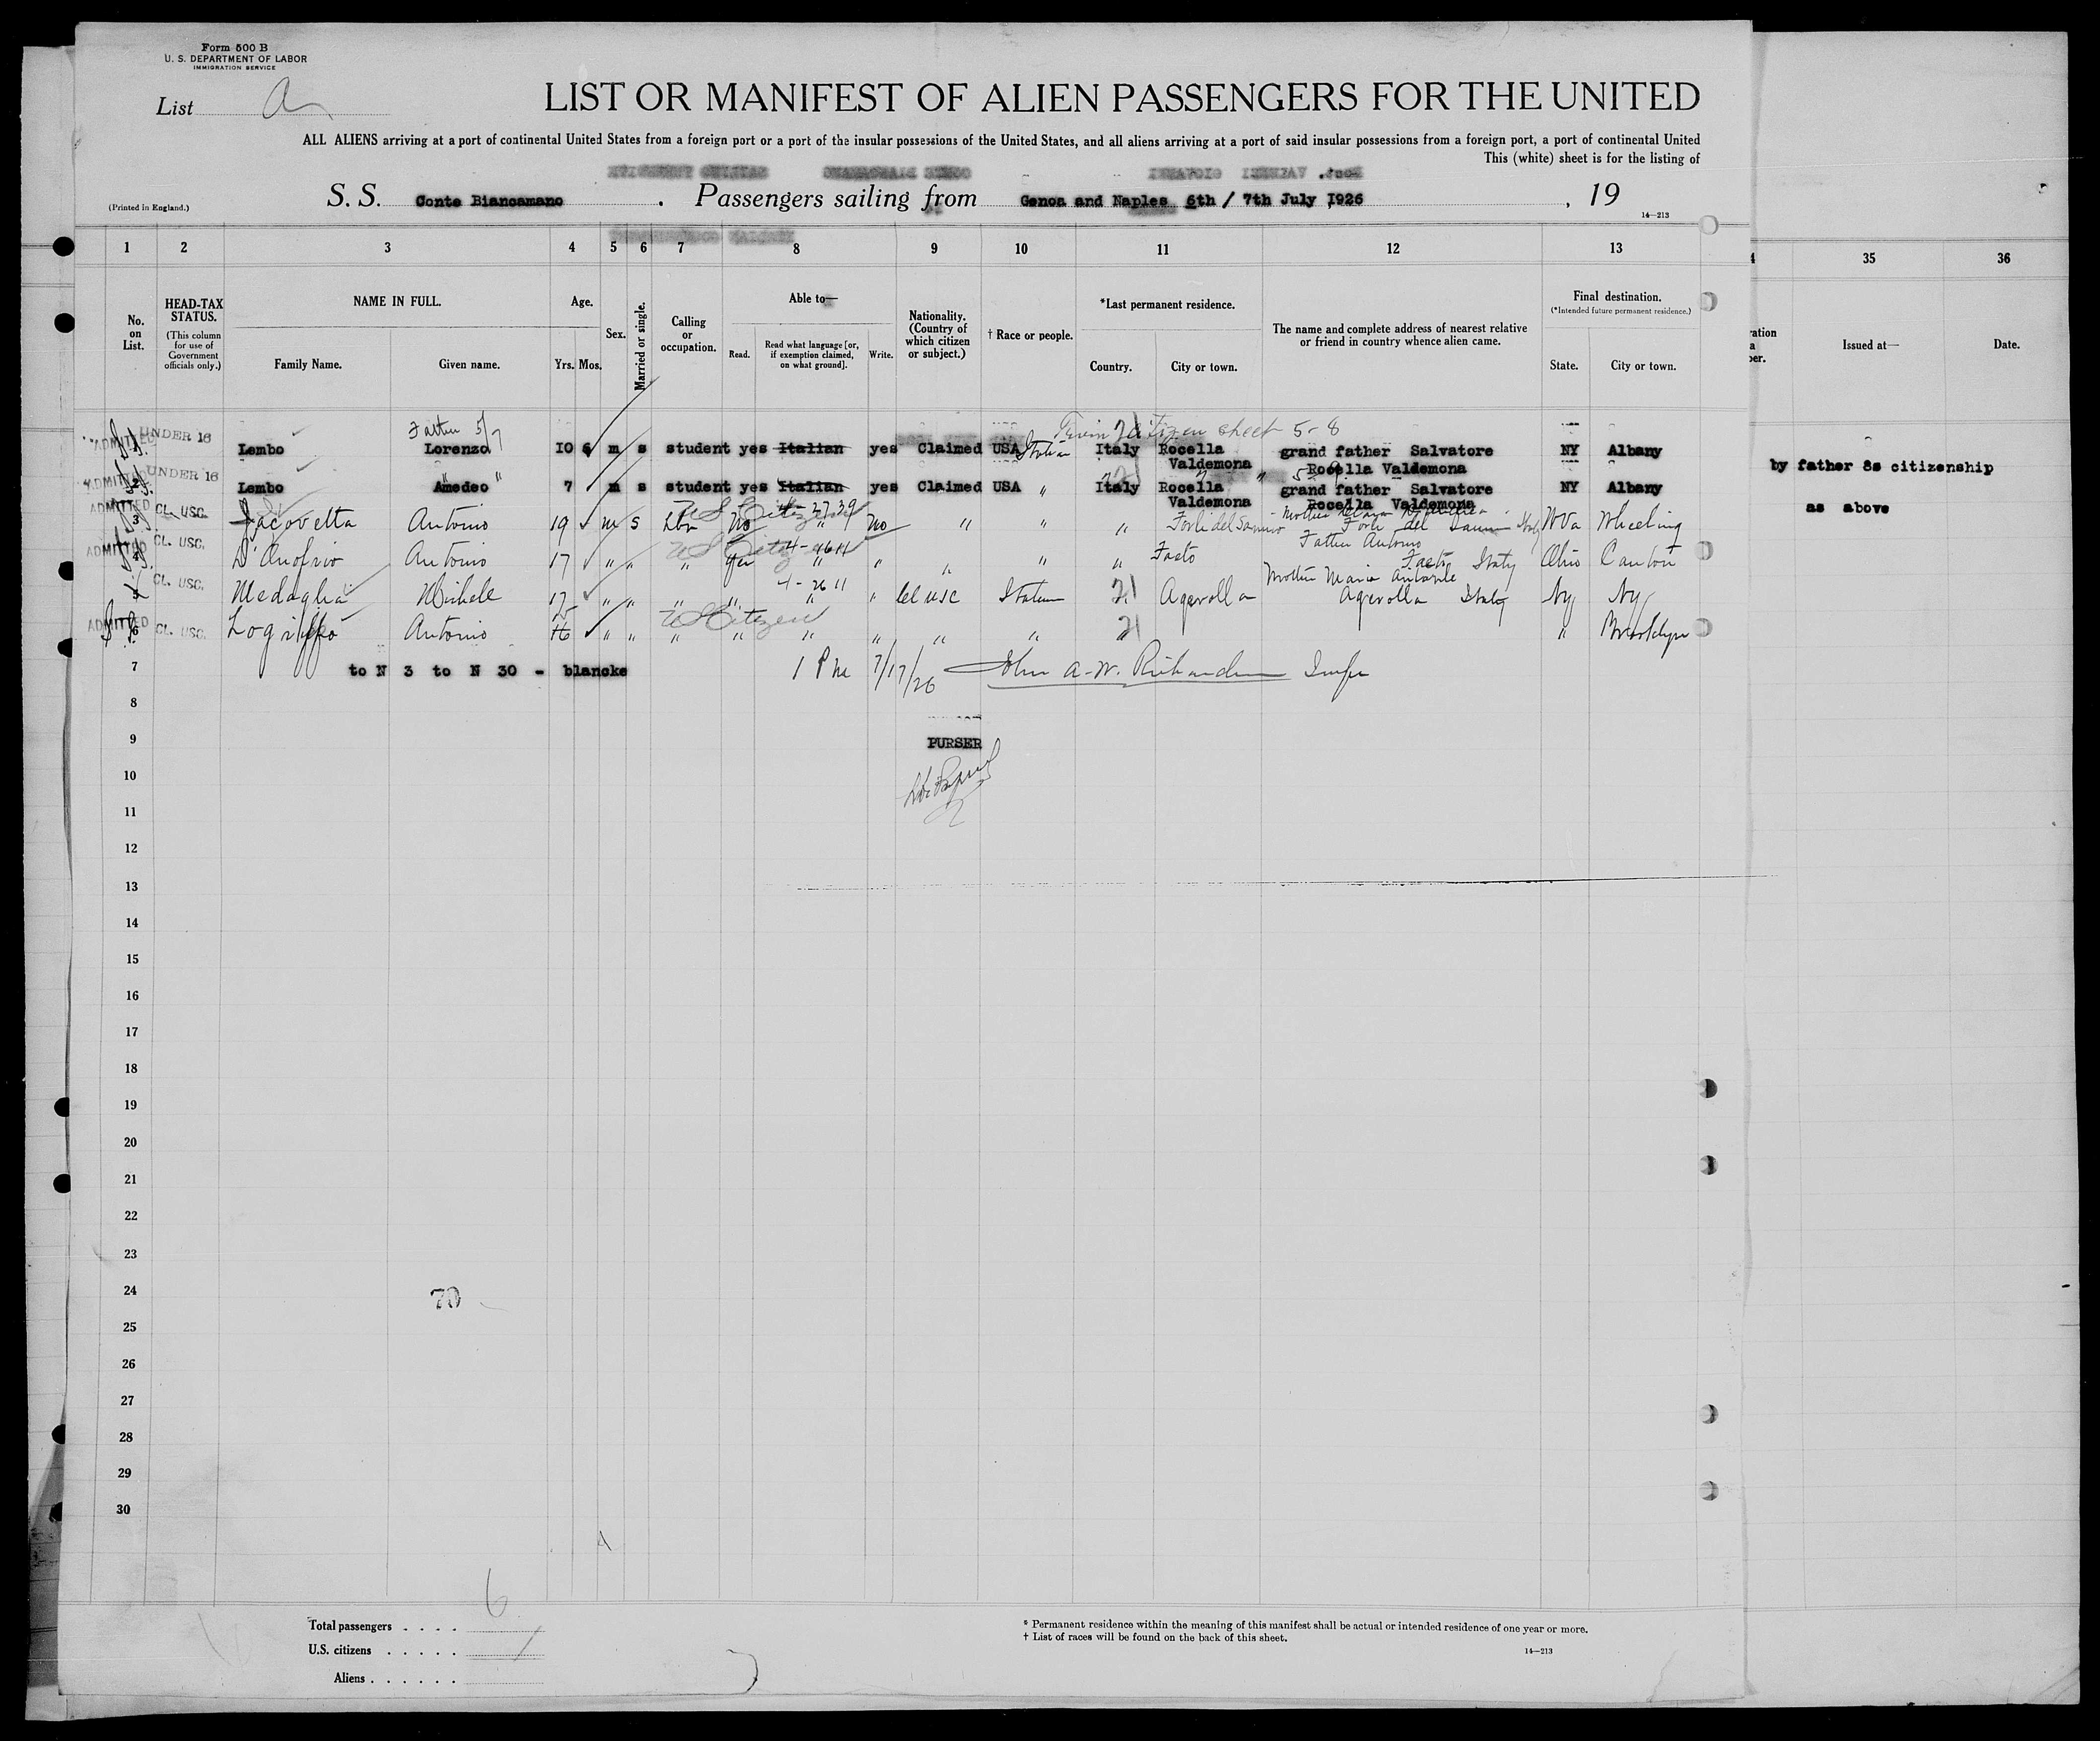 Form 500 B
U. S. DEPARTMENT OF LABOR
IMMIGRATION SERVICE
List
LIST OR MANIFEST OF ALIEN PASSENGERS FOR THE UNITED
ALL ALIENS arriving at a port of continental United States from a foreign port or a port of the insular possessions of the United States, and all aliens arriving at a port of said insular possessions from a foreign port, a port of continental United
This (white) sheet is for the listing of
(Printed in England.) S. S. Conte Biancamano . Passengers sailing from Genoa and Naples 6th / 7th July 1926 , 19
14—213
1 2 3 4 5 6 7 8 9 10 11 12 13 35 36
No. on List.
HEAD-TAX STATUS.
(This column for use of Government officials only.)
NAME IN FULL.
Family Name. Given name.
Age.
Yrs. Mos.
Sex.
Married or single.
Calling or occupation.
Able to—
Read. Read what language [or, if exemption claimed, on what ground]. Write.
Nationality. (Country of which citizen or subject.)
† Race or people.
*Last permanent residence.
Country. City or town.
The name and complete address of nearest relative or friend in country whence alien came.
Final destination.
(*Intended future permanent residence.)
State. City or town.
Issued at— Date.
Father 5/7 sheet 5-8
ADMITTED UNDER 16 Lembo Lorenzo IO 6 m s student yes Italian yes Claimed USA Italian Italy Rocella Valdemona grand father Salvatore Rocella Valdemona NY Albany by father 8s citizenship
ADMITTED 2 UNDER 16 Lembo Amedeo " 7 m s student yes Italian yes Claimed USA " Italy Rocella Valdemona grand father Salvatore Rocella Valdemona NY Albany as above
ADMITTED 3 CL. USC. Jacovetta Antonio 19 m s No " No " " " Mother W Va Wheeling
US Citizen
ADMITTED 4 CL. USC. D'Onofrio Antonio 17 " " " yes " " " " " Faeto Father Antonio Faeto Italy Ohio Canton
US Citizen
CL. USC. Medaglia Michele 17 " " " " " " Cl USC Italian Agerolla Mother Maria Agerolla Italy Ny Ny
ADMITTED 6 CL. USC. Antonio 15 16 " " " " " " " " " Brooklyn
US Citizen
7 to N 3 to N 30 - blancke 1 P m 7/17/26 John A. W. Richardson Insp
8
9 PURSER
10
11
12
13
14
15
16
17
18
19
20
21
22
23
24 70
25
26
27
28
29
30
6
Total passengers . . . .
U.S. citizens . . . . .
Aliens . . . . . .
* Permanent residence within the meaning of this manifest shall be actual or intended residence of one year or more.
† List of races will be found on the back of this sheet.
14—213